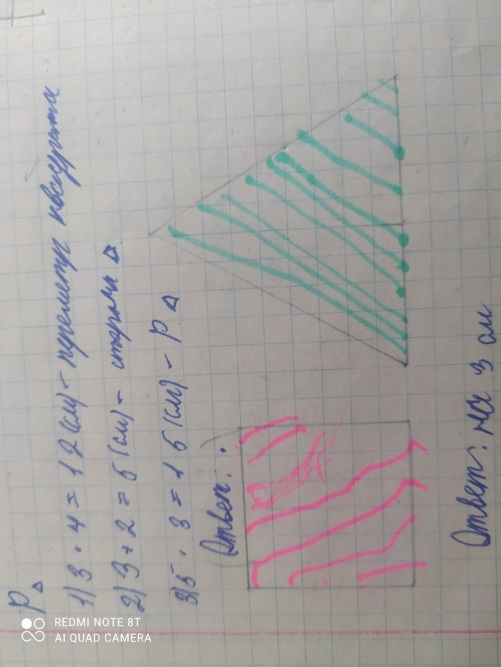 P△
1) 3 · 4 = 12 (см) – периметр квадрата
2) 3 + 2 = 5 (см) – сторона △
3) 5 · 3 = 15 (см) – P △
Ответ:
Ответ: на 3 см
REDMI NOTE 8T
AI QUAD CAMERA